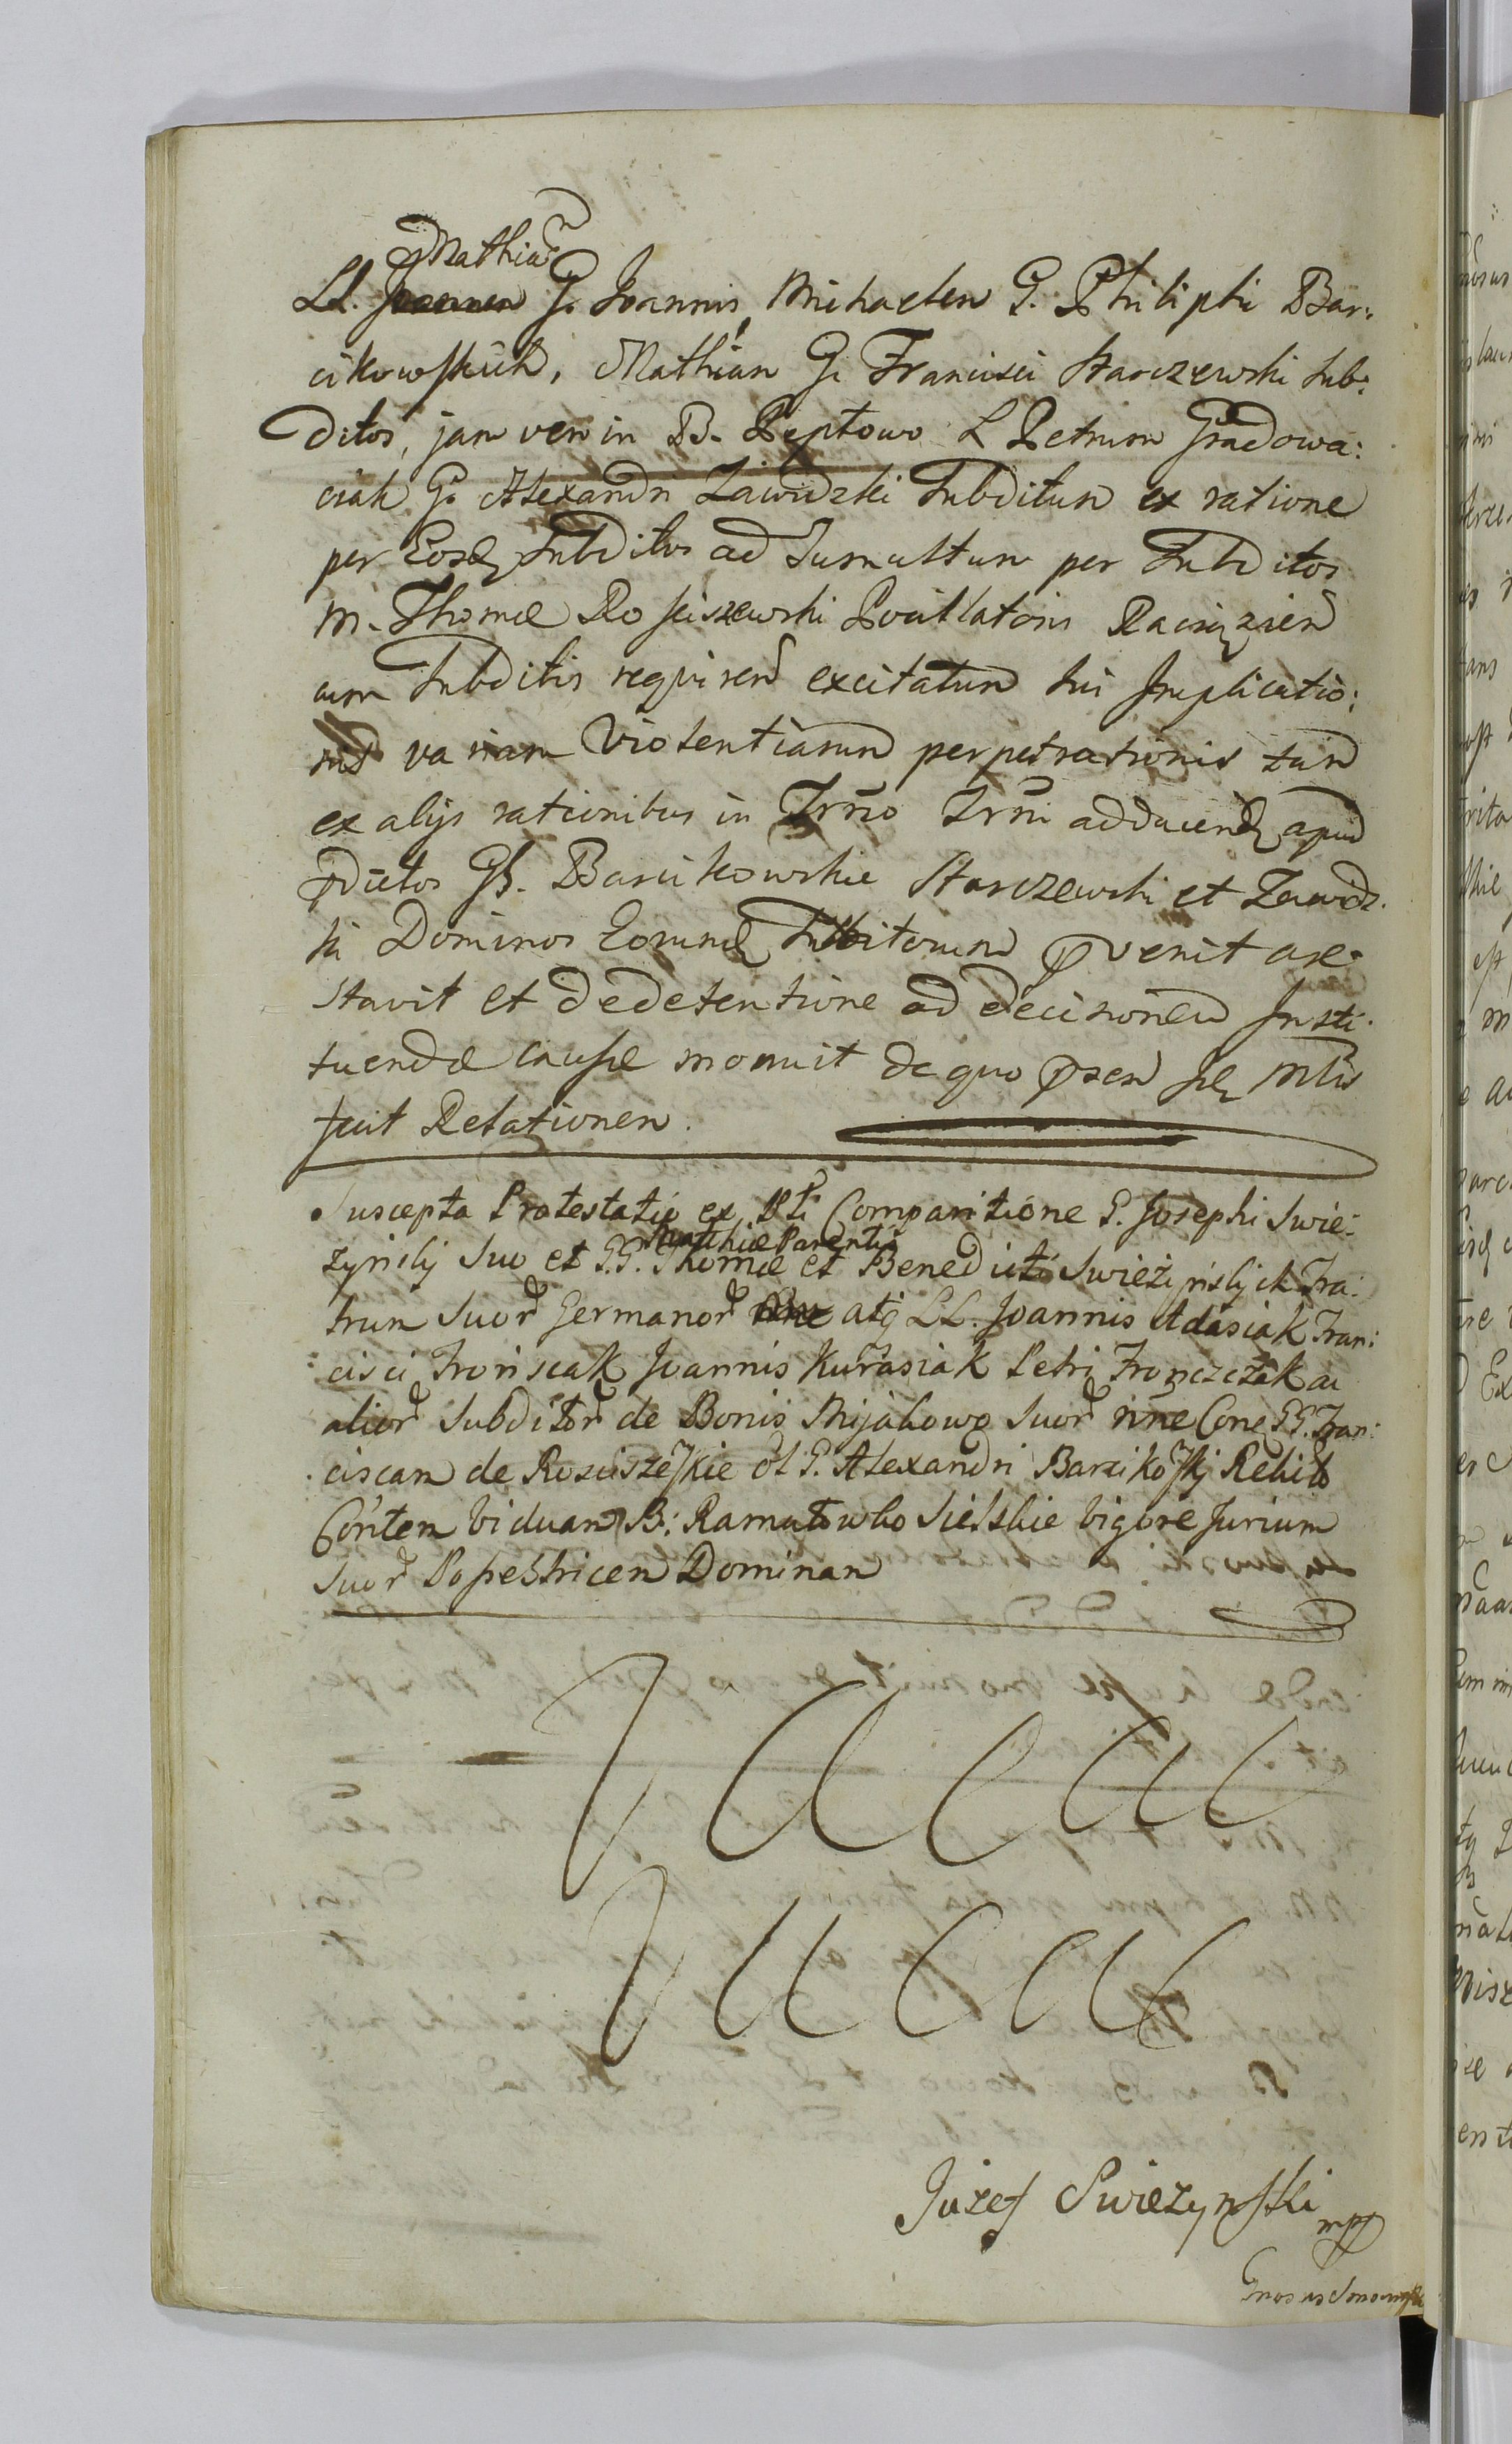 Mathiam
LL. Joannem G. Joannis, Michaelem G. Philiphi Bar:
cikowskich, Mathiam G. Francisci Starczewski Sub:
ditos, jam vero in B. Peptowo L Petrum Gradowa:
ciak G. Alexandri Zawidzki Subditum ex ratione
per Eosdem Subditos ad Tumultum per Subditos
M. Thomæ Rosciszewski Pocillatoris Raciązien
cum Subditis requiren excitatum sui Implicatio:
nis variam Violentiarum perpetrationis tum
ex alijs rationibus in Trmo Trmi adducend apud
pdictos GG. Barcikowskie Starczewski et Zawidz:
ki Dominos Eorumd Subditorum pvenit are:
stavit et de detentione ad decisionem Insti:
tuendæ causæ monuit de quo præsen Mtris
fecit Relationem.
Suscepta Protestatio ex Pti Comparitione G. Josephi Swie:
Matthiæ Parentis
zynskij Suo et G.G. Thomæ et Benedicti Swieżynskich Fra:
trum Suor Germanor atq LL. Joannis Adasiak Fran:
cisci Fronscak Joannis Kurasiak Petri Fronczczak ac
alior Subditor de Bonis Mijakowo Suor nine Cone GG. Fran:
ciscam de Rosciszewskie ol G. Alexandri Barcikoskj Relict
Conten viduam B: Ramutowko Sielskie vigore Jurium
Suor Possestricem Dominam
Jozef Swiezynski mpp
Grosus